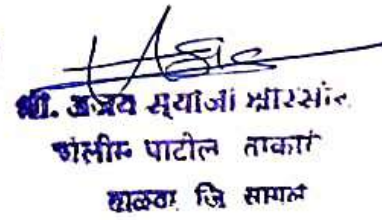 श्री. अजय सयाजी
पोलीस पाटील ताकारी
वाळवा जि सांगली